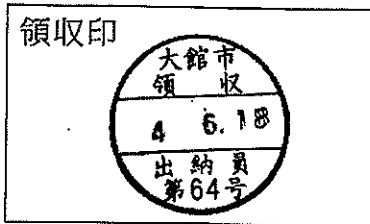 領収印
大館市
領 収
4 6.18
出納員
第64号